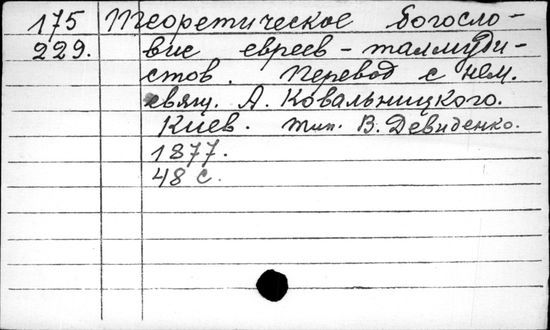 175 Теоретическое богосло-
229. вие евреев-талмуди-
стов. Перевод с нем.
свящ. А. Ковальницкого.
Киев. тип. В. Давиденко.
1877.
48 с.